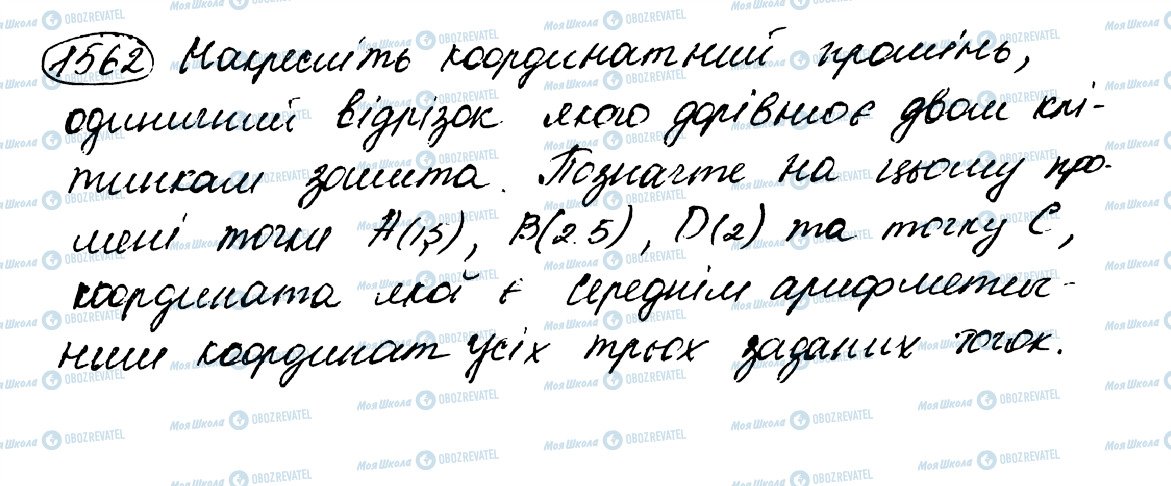 1562 Накресліть координатний промінь,
одиничний відрізок якого дорівнює двом клі-
тинкам зошита. Позначте на цьому про-
мені точки A(1,5), B(2.5), D(2) та точку C,
координата якої є середнім арифметич-
ним координат усіх трьох заданих точок.